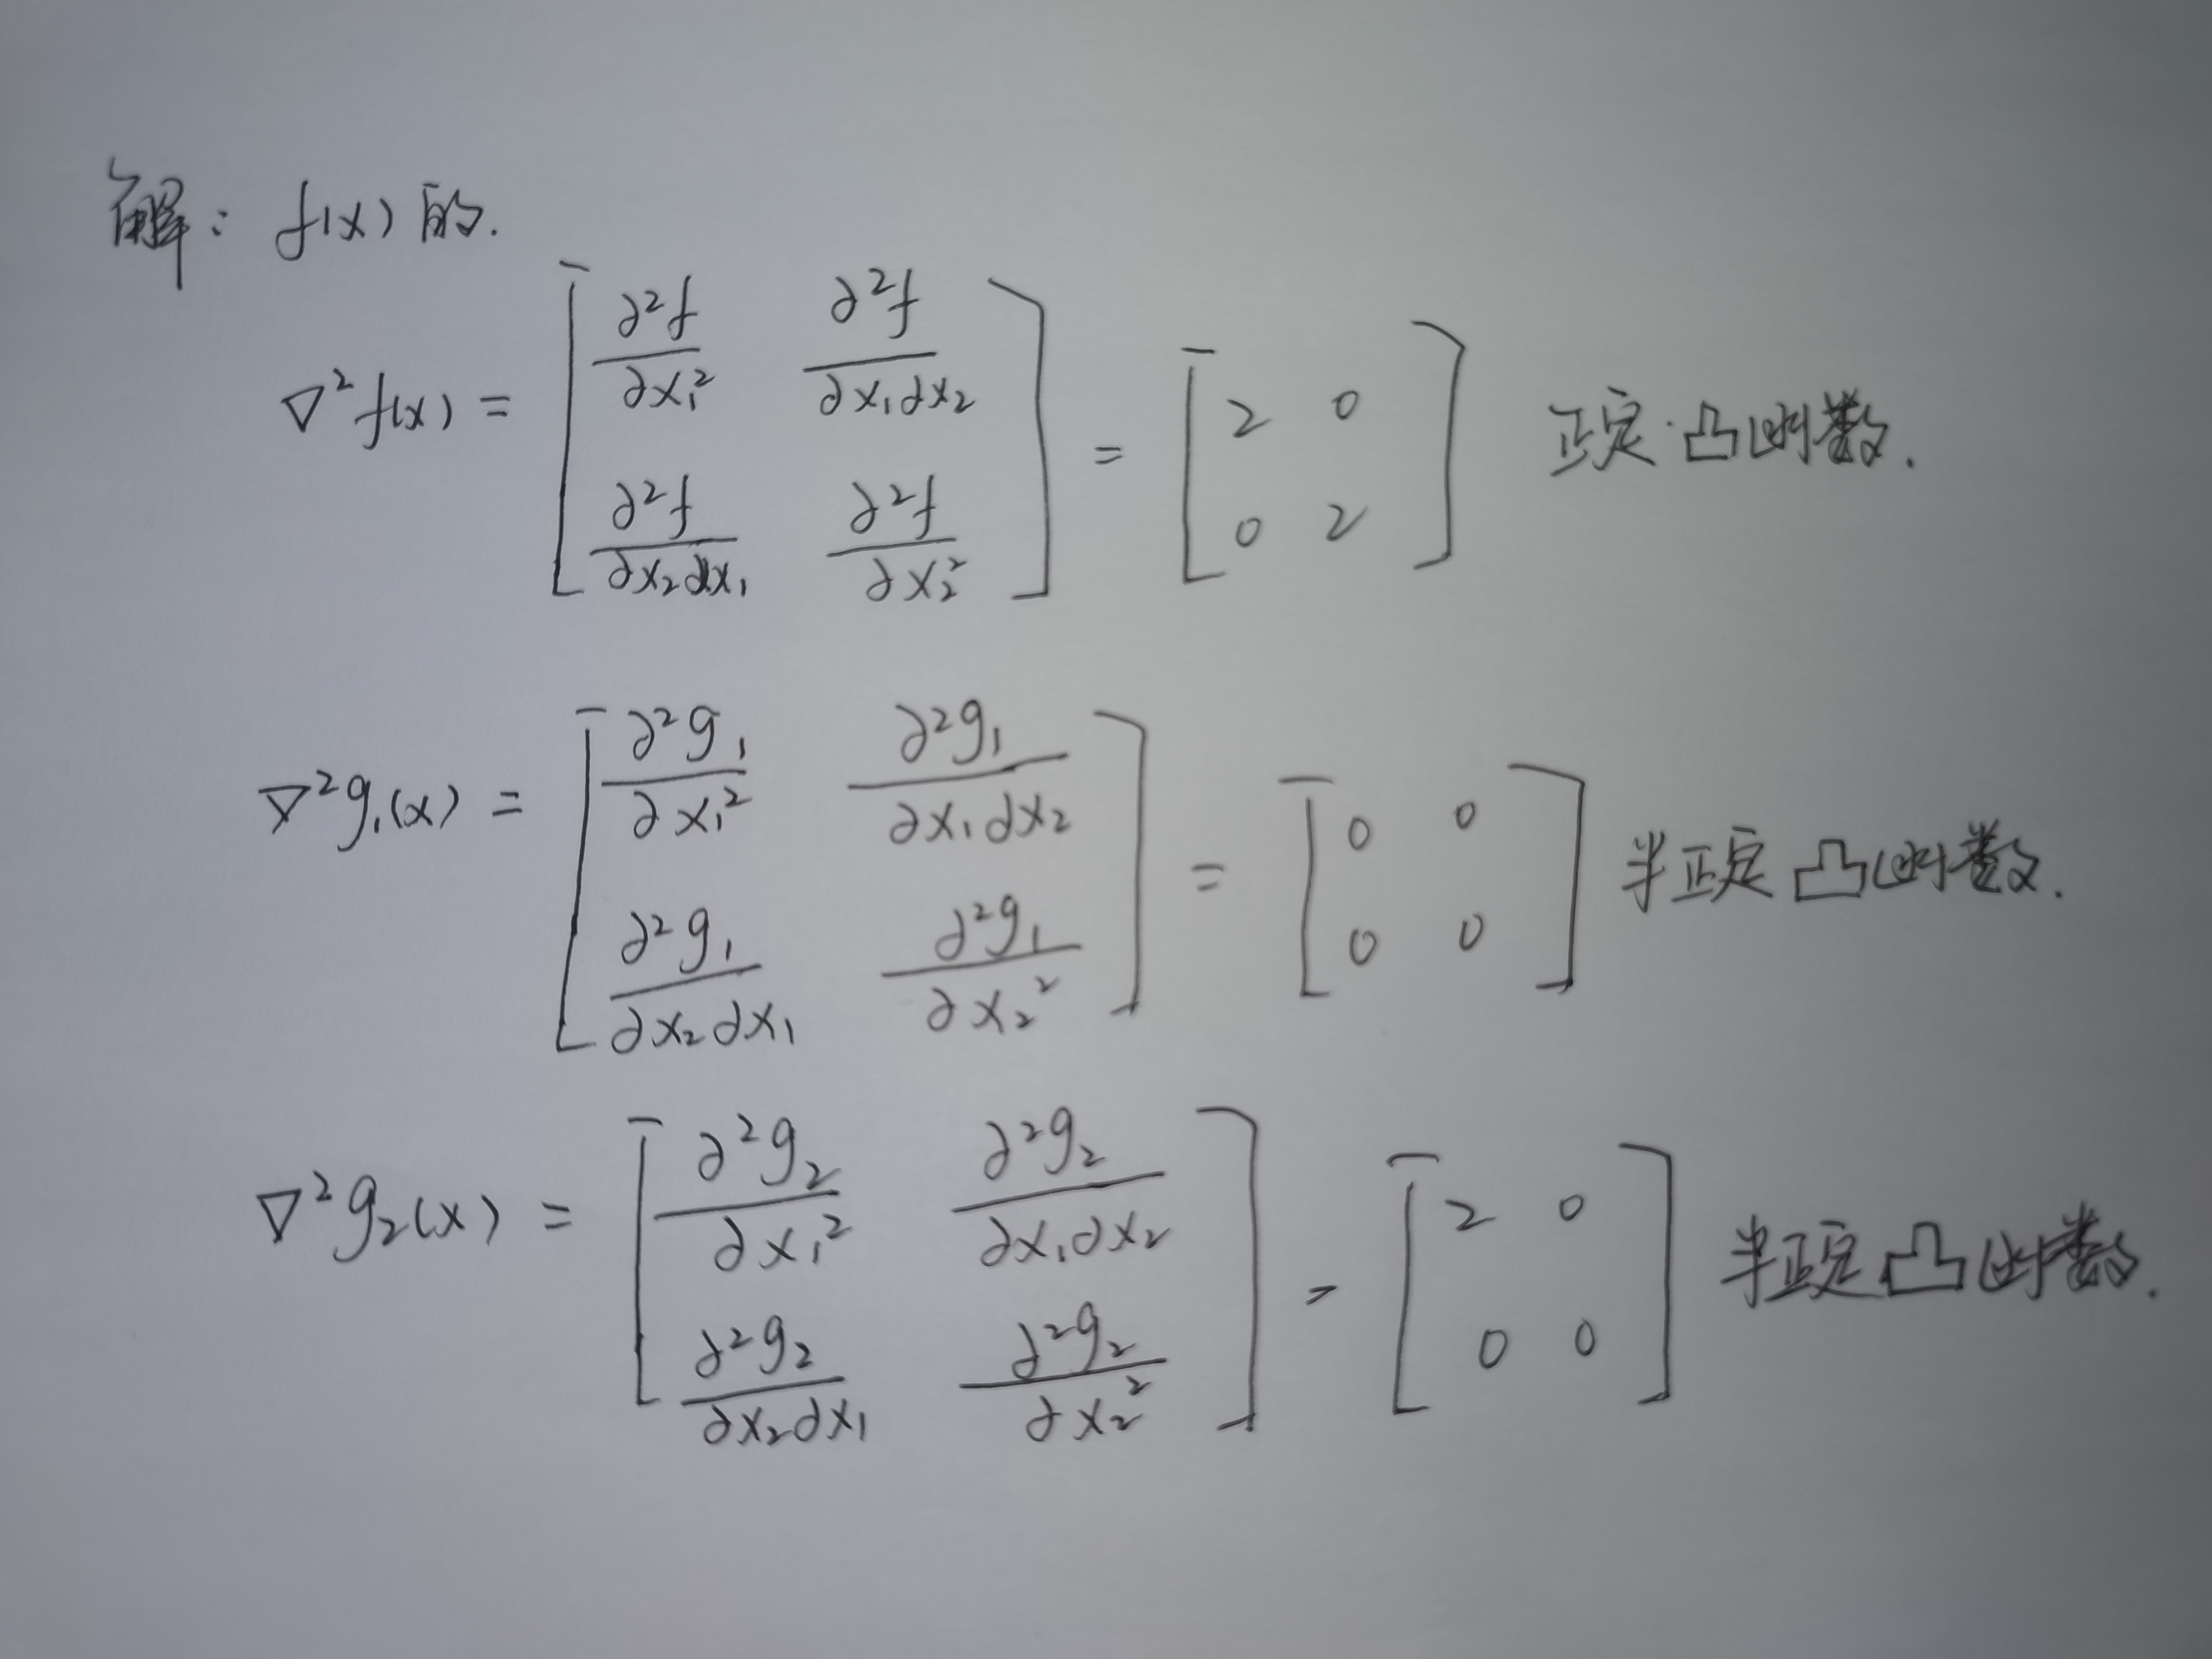 解: f(x) 的.
∇²f(x) = [ ∂²f/∂x₁² ∂²f/∂x₁∂x₂ ; ∂²f/∂x₂∂x₁ ∂²f/∂x₂² ] = [ 2 0 ; 0 2 ] 正定·凸函数.
∇²g₁(x) = [ ∂²g₁/∂x₁² ∂²g₁/∂x₁∂x₂ ; ∂²g₁/∂x₂∂x₁ ∂²g₁/∂x₂² ] = [ 0 0 ; 0 0 ] 半正定 凸函数.
∇²g₂(x) = [ ∂²g₂/∂x₁² ∂²g₂/∂x₁∂x₂ ; ∂²g₂/∂x₂∂x₁ ∂²g₂/∂x₂² ] = [ 2 0 ; 0 0 ] 半正定 凸函数.